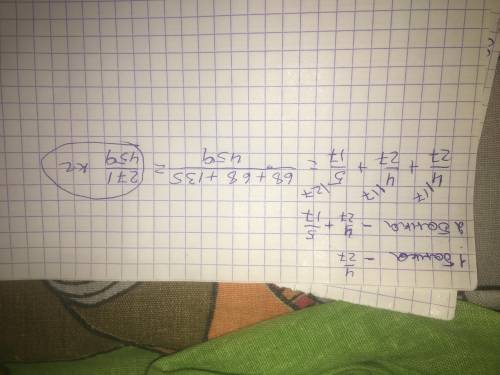 1 банка - 4/27
2 банка - 4/27 + 5/17
4/27 \17 + 4/27 \17 + 5/17 \27 = 68+68+135/459 = 271/459 кг